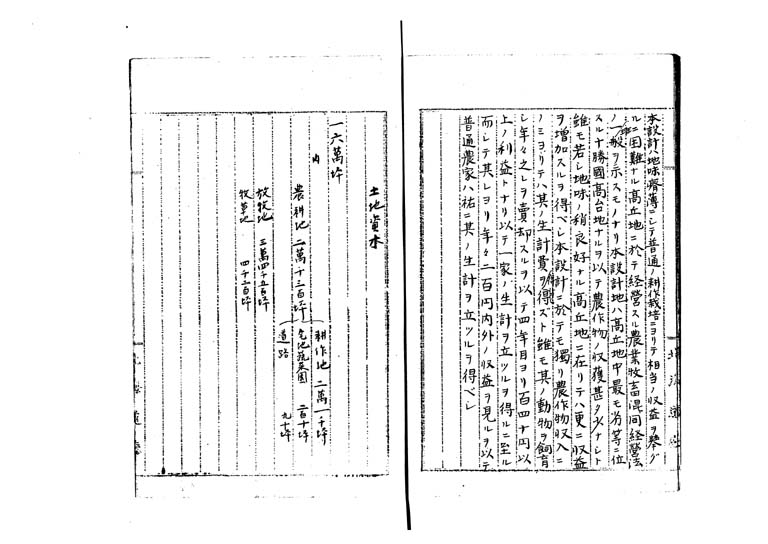 本設計ハ地味瘠薄ニシテ普通ノ耕作栽培ニヨリテ相当ノ収益ヲ挙グ
ルニ困難ナル高丘地ニ於テ経営スル農業牧畜混同経営法
ノ一般ヲ示スモノナリ本設計地ハ高丘地中最モ劣等ニ位
スル十勝國高台地ナルヲ以テ農作物ノ収獲甚タ少ナシト
雖モ若シ地味ノ稍良好ナル高丘地ニ在リテハ更ニ収益
ヲ増加スルヲ得ベシ本設計ニ於テモ獨リ農作物収入ニ
ノミヨリテハ其ノ生計費ヲ得ズト雖モ其ノ動物ヲ飼育
シ年々之レヲ賣却スルヲ以テ四年目ヨリ百四十円以
上ノ利益トナリ以テ一家ノ生計ヲ立ツルヲ得ルニ至ル
而シテ其レヨリ年々二百円内外ノ収益ヲ見ルヲ以テ
普通農家ハ祐ニ其ノ生計ヲ立ツルヲ得ベシ
土地資本
一六萬坪
内
農耕地 二萬千三百坪
耕作地 二萬一千坪
宅地蔬菜園 二百十坪
道路 九十坪
放牧地 三萬四千五百坪
牧草地 四千二百坪
北海道廳